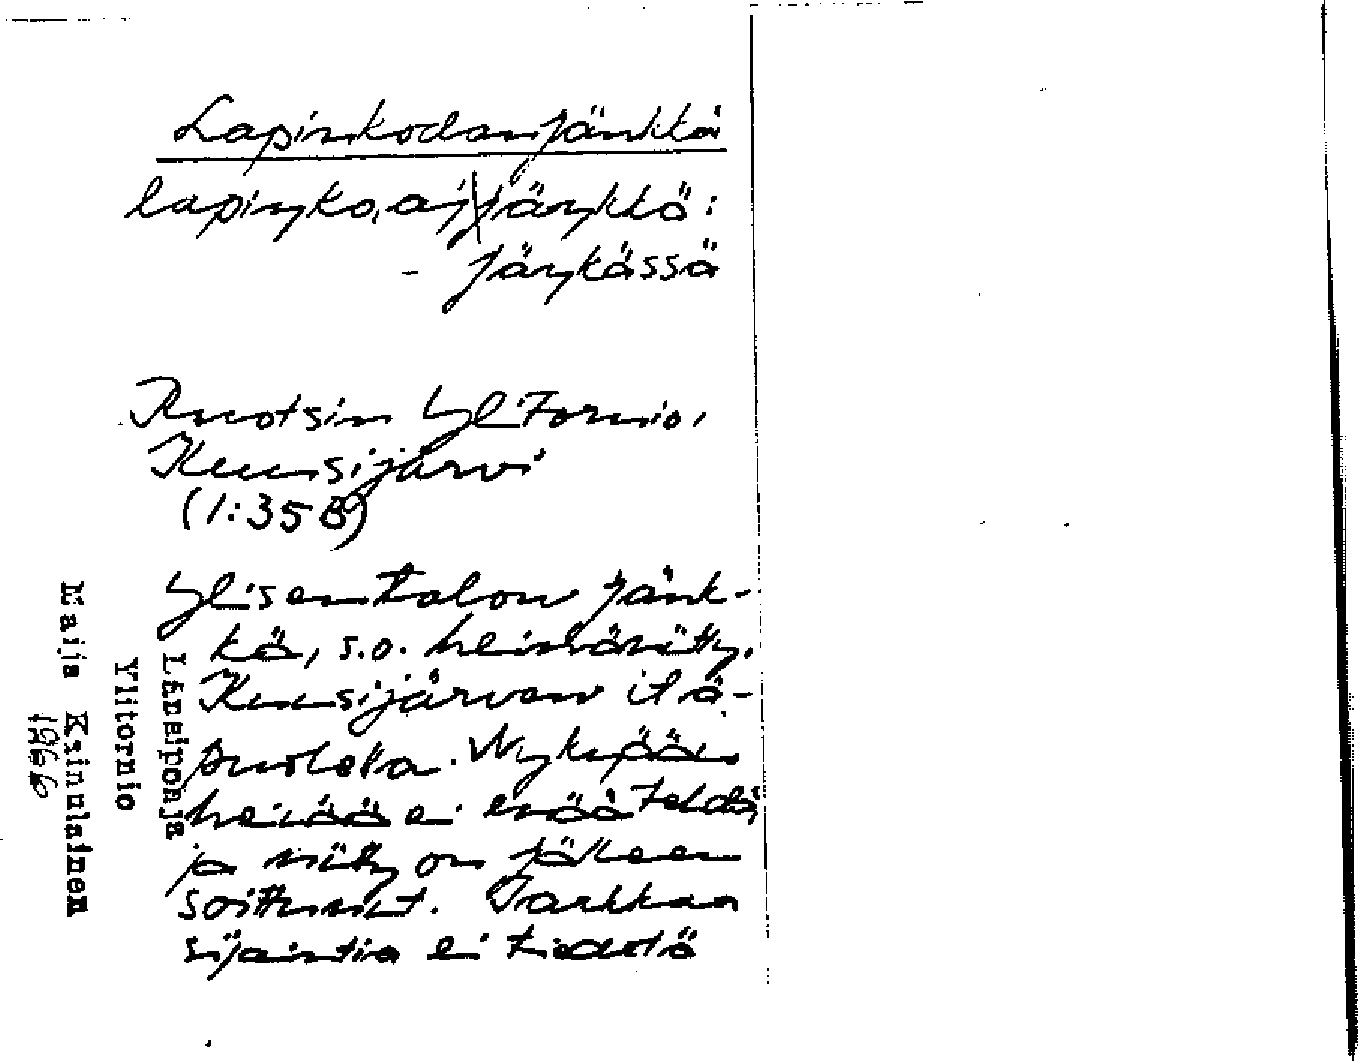 Lapinkodanjänkkä
lapiŋko,aṅ|jäŋkkä:
- jäŋkässä
Ruotsin Ylitornio,
Kuusijärvi
(1:35 B)
Ylisentalon jänk-
kä, s.o. heinäniitty,
Kuusijärven itä-
puolella. Nykyään
heinää ei enää tehdä,
ja niitty on jälleen
soittunut. Tarkkaa
sijaintia ei tiedetä
Länsipohja
Ylitornio
Maija Kainulainen
1966